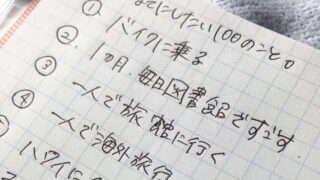 までにしたい100のこと。
① バイクに乗る
② 1ヵ月 毎日図書館ですごす
③ 一人で旅館に行く
④ 一人で海外旅行
⑤ ハワイに